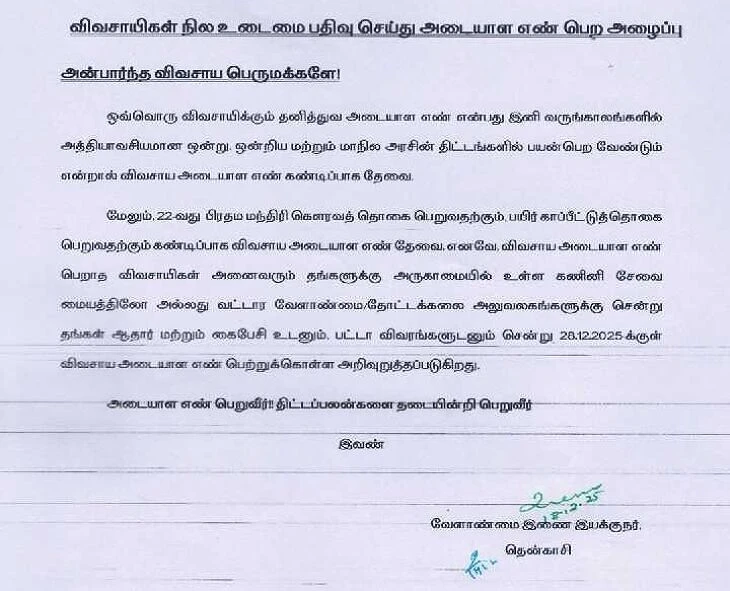 விவசாயிகள் நில உடைமை பதிவு செய்து அடையாள எண் பெற அழைப்பு
அன்பார்ந்த விவசாய பெருமக்களே!
ஒவ்வொரு விவசாயிக்கும் தனித்துவ அடையாள எண் என்பது இனி வருங்காலங்களில்
அத்தியாவசியமான ஒன்று. ஒன்றிய மற்றும் மாநில அரசின் திட்டங்களில் பயன்பெற வேண்டும்
என்றால் விவசாய அடையாள எண் கண்டிப்பாக தேவை.
மேலும், 22-வது பிரதம மந்திரி கௌரவத் தொகை பெறுவதற்கும், பயிர் காப்பீட்டுத்தொகை
பெறுவதற்கும் கண்டிப்பாக விவசாய அடையாள எண் தேவை, எனவே, விவசாய அடையாள எண்
பெறாத விவசாயிகள் அனைவரும் தங்களுக்கு அருகாமையில் உள்ள கணினி சேவை
மையத்திலோ அல்லது வட்டார வேளாண்மை/தோட்டக்கலை அலுவலகங்களுக்கு சென்று
தங்கள் ஆதார் மற்றும் கைபேசி உடனும், பட்டா விவரங்களுடனும் சென்று 28.12.2025-க்குள்
விவசாய அடையாள எண் பெற்றுக்கொள்ள அறிவுறுத்தப்படுகிறது.
அடையாள எண் பெறுவீர்!! திட்டப்பலன்களை தடையின்றி பெறுவீர்
இவண்
18.12.25
வேளாண்மை இணை இயக்குநர்,
தென்காசி